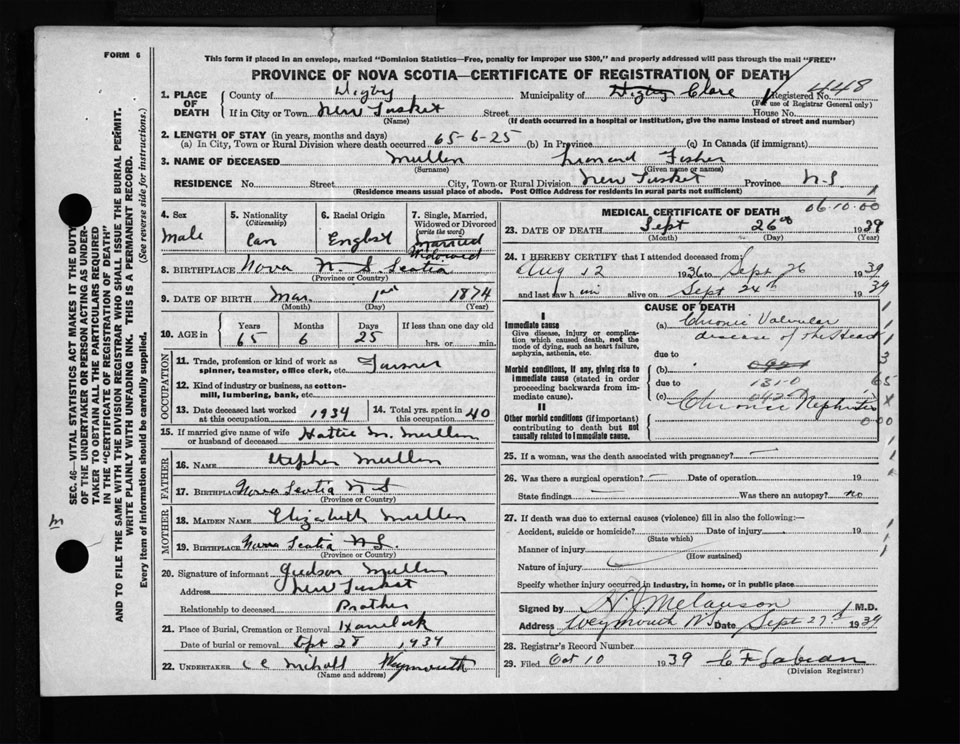 FORM 6
This form if placed in an envelope, marked "Dominion Statistics—Free, penalty for improper use $300," and properly addressed will pass through the mail "FREE"
PROVINCE OF NOVA SCOTIA—CERTIFICATE OF REGISTRATION OF DEATH
1. PLACE OF DEATH County of Digby Municipality of Digby Clare Registered No. 448
(For use of Registrar General only)
If in City or Town New Tusket Street House No.
(Name) (If death occurred in a hospital or institution, give the name instead of street and number)
2. LENGTH OF STAY (in years, months and days)
(a) In City, Town or Rural Division where death occurred 65-6-25 (b) In Province (c) In Canada (if immigrant)
3. NAME OF DECEASED Mullen Leonard Fisher
(Surname) (Given name or names)
RESIDENCE No. Street City, Town or Rural Division New Tusket Province N.S
(Residence means usual place of abode. Post Office Address for residents in rural parts not sufficient)
4. Sex Male
5. Nationality (Citizenship) Can
6. Racial Origin English
7. Single, Married, Widowed or Divorced (write the word) Married Widowed
8. BIRTHPLACE Nova N.S. Scotia
(Province or Country)
9. DATE OF BIRTH Mar. 1st 1874
(Month) (Day) (Year)
10. AGE in Years 65 Months 6 Days 25 If less than one day old hrs. or min.
OCCUPATION
11. Trade, profession or kind of work as spinner, teamster, office clerk, etc. Farmer
12. Kind of industry or business, as cotton-mill, lumbering, bank, etc.
13. Date deceased last worked at this occupation 1934
14. Total yrs. spent in this occupation 40
15. If married give name of wife or husband of deceased Hattie M. Mullen
FATHER
16. NAME Stephen Mullen
17. BIRTHPLACE Nova Scotia N S
(Province or Country)
MOTHER
18. MAIDEN NAME Elizabeth Mullen
19. BIRTHPLACE Nova Scotia N.S.
(Province or Country)
20. Signature of informant Judson Mullen
Address New Tusket
Relationship to deceased Brother
21. Place of Burial, Cremation or Removal Havelock
Date of burial or removal Sept 28 1939
22. UNDERTAKER Weymouth
(Name and address)
MEDICAL CERTIFICATE OF DEATH 06.10.00
23. DATE OF DEATH Sept 26th 1939
(Month) (Day) (Year)
24. I HEREBY CERTIFY that I attended deceased from:
Aug 12 1936 to Sept 26 1939
and last saw h im alive on Sept 24th 1939
CAUSE OF DEATH
I
Immediate cause
Give disease, injury or complication which caused death, not the mode of dying, such as heart failure, asphyxia, asthenia, etc.
(a) Chronic Valvular disease of the Heart
due to
Morbid conditions, if any, giving rise to immediate cause (stated in order proceeding backwards from immediate cause).
(b)
due to 131-0
(c)
II
Other morbid conditions (if important) contributing to death but not causally related to immediate cause.
Chronic Nephritis
25. If a woman, was the death associated with pregnancy? —
26. Was there a surgical operation? — Date of operation 19
State findings — Was there an autopsy? no
27. If death was due to external causes (violence) fill in also the following:—
Accident, suicide or homicide? Date of injury 19
(State which)
Manner of injury
(How sustained)
Nature of injury
Specify whether injury occurred in industry, in home, or in public place
Signed by M.D.
Address Weymouth NS Date Sept 27th 1939
28. Registrar's Record Number
29. Filed Oct 10 1939
(Division Registrar)
SEC. 46—VITAL STATISTICS ACT MAKES IT THE DUTY
OF THE UNDERTAKER OR PERSON ACTING AS UNDER-
TAKER TO OBTAIN ALL THE PARTICULARS REQUIRED
IN THE "CERTIFICATE OF DEATH"
AND TO FILE THE SAME WITH THE DIVISION REGISTRAR WHO SHALL ISSUE THE BURIAL PERMIT.
WRITE PLAINLY WITH UNFADING INK. THIS IS A PERMANENT RECORD.
Every item of information should be carefully supplied. (See reverse side for instructions.)